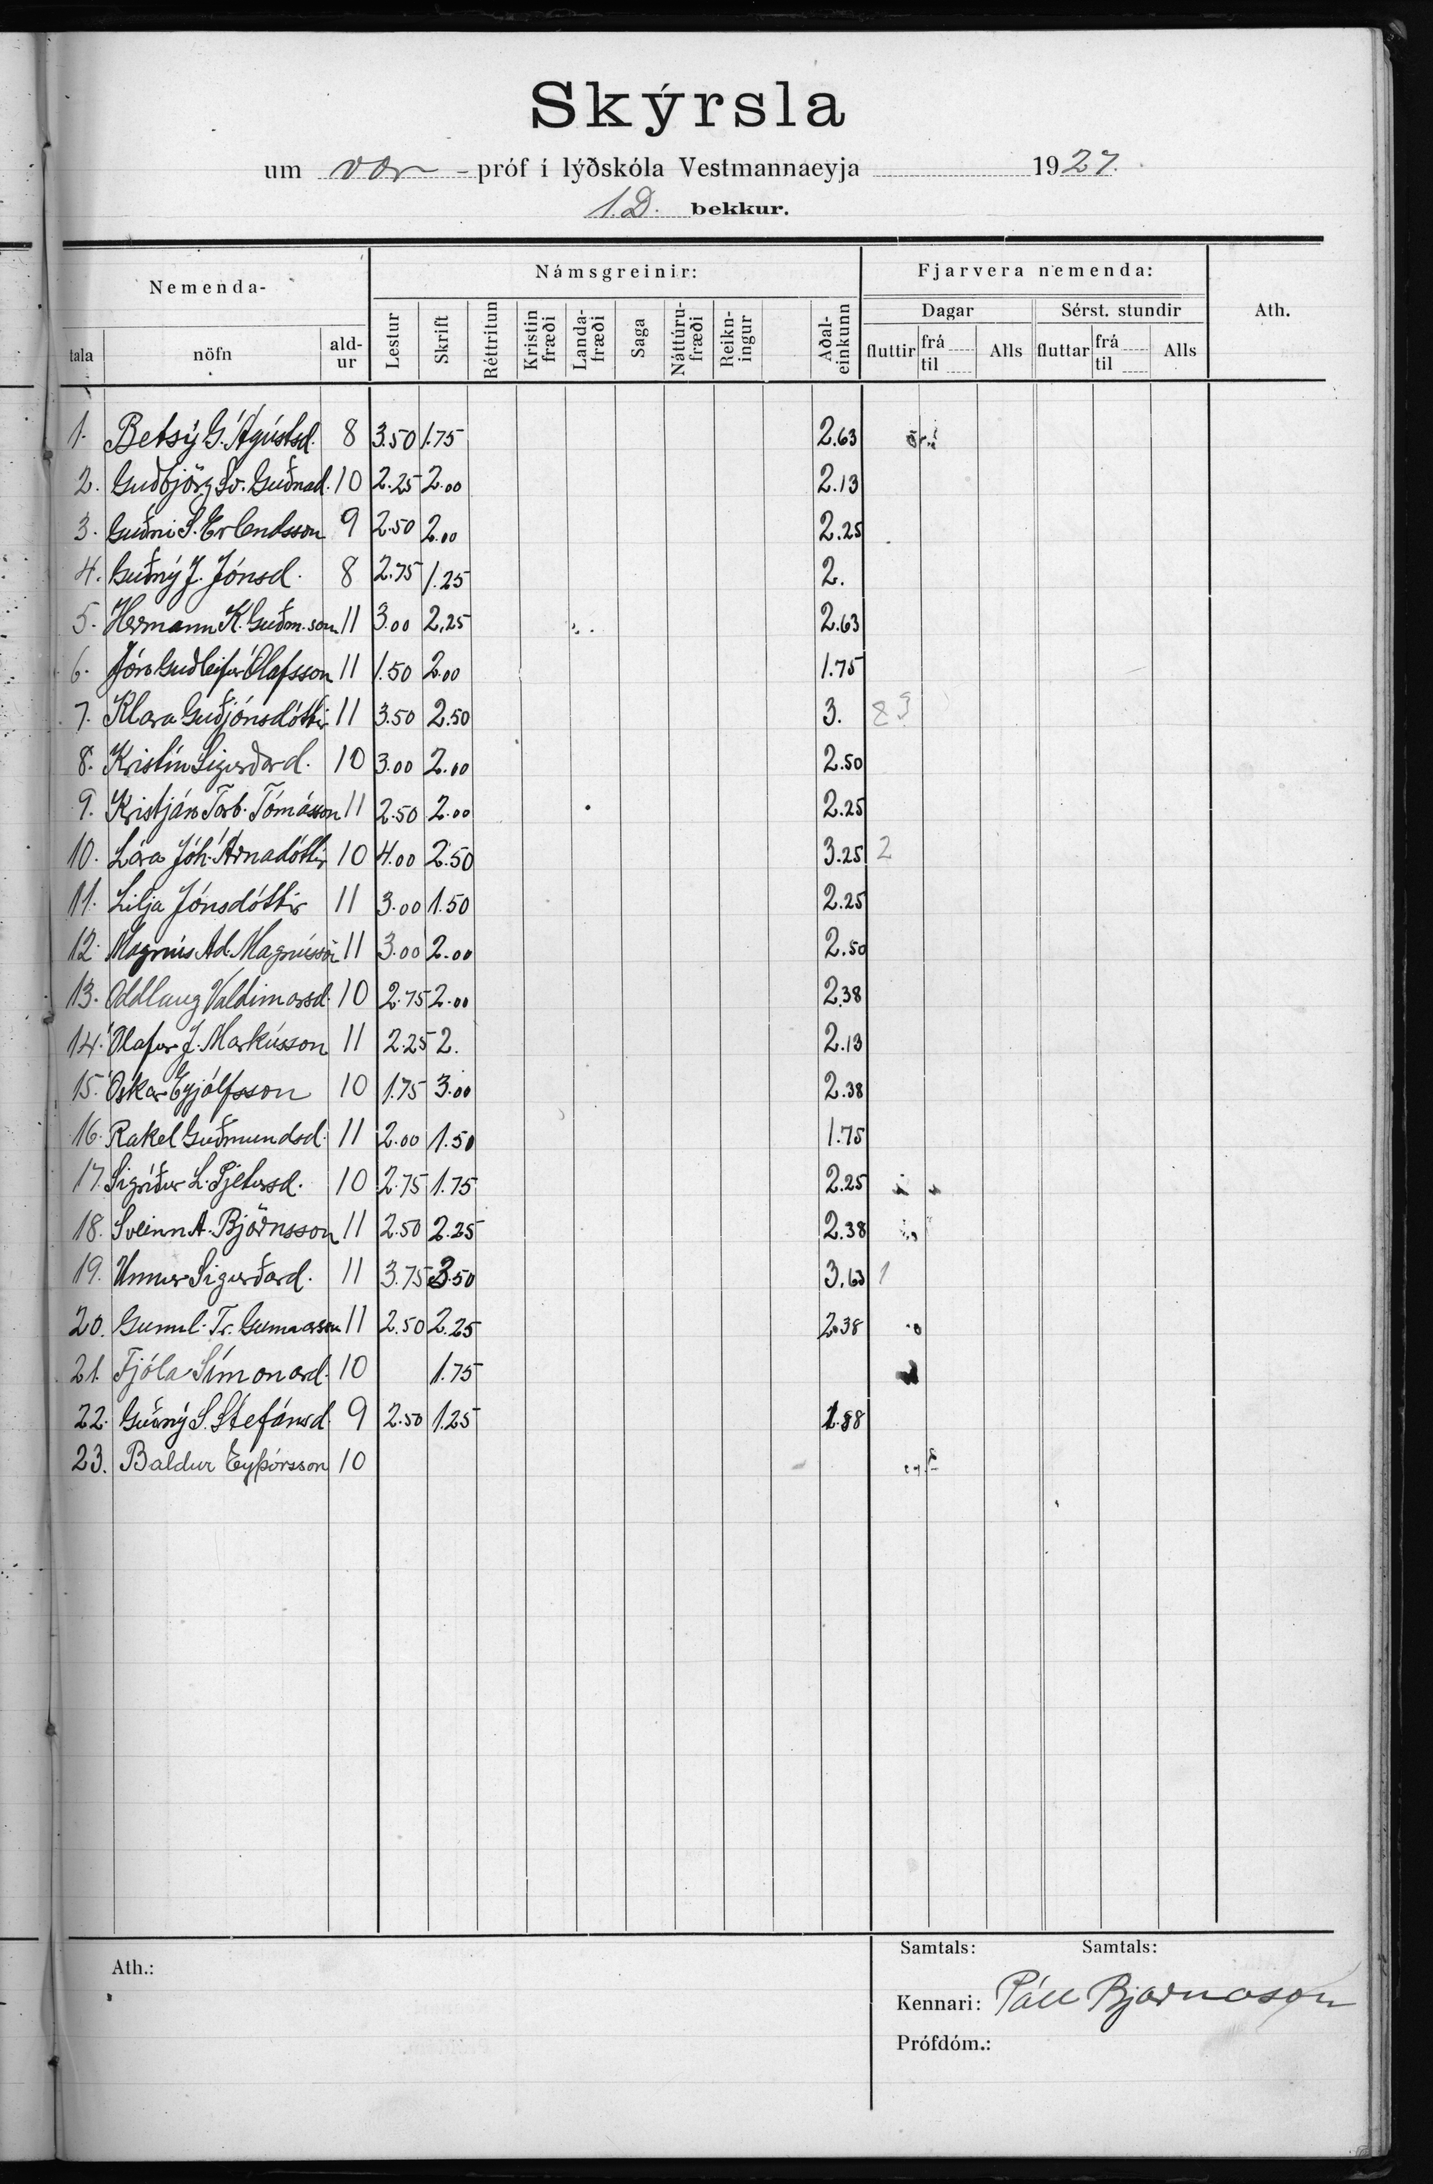 Skýrsla
um vor - próf í lýðskóla Vestmannaeyja 1927.
1.D. bekkur.
Nemenda- Námsgreinir: Fjarvera nemenda: Ath.
Dagar Sérst. stundir
tala nöfn ald-ur Lestur Skrift Réttritun Kristin fræði Landa-fræði Saga Náttúru-fræði Reikn-ingur Aðal-einkunn fluttir frá til Alls fluttar frá til Alls
1. Betsý G. Ágústsd. 8 3.50 1.75 2.63
2. Guðbjörg Sv. Guðnad. 10 2.25 2.00 2.13
3. Guðni S. Erlendsson 9 2.50 2.00 2.25
4. Guðný J. Jónsd. 8 2.75 1.25 2.
5. Hermann K. Guðm.son 11 3.00 2.25 2.63
6. Jón Guðleifur Ólafsson 11 1.50 2.00 1.75
7. Klara Guðjónsdóttir 11 3.50 2.50 3.
8. Kristín Sigurðard. 10 3.00 2.00 2.50
9. Kristján Torb. Tómásson 11 2.50 2.00 2.25
10. Lára Jóh. Árnadóttir 10 4.00 2.50 3.25 2
11. Lilja Jónsdóttir 11 3.00 1.50 2.25
12. Magnús Ad. Magnússon 11 3.00 2.00 2.50
13. Oddlaug Valdimarsd. 10 2.75 2.00 2.38
14. Ólafur J. Markússon 11 2.25 2. 2.13
15. Óskar Eyjólfsson 10 1.75 3.00 2.38
16. Rakel Guðmundsd. 11 2.00 1.50 1.75
17. Sigríður L. Pjetursd. 10 2.75 1.75 2.25
18. Sveinn A. Björnsson 11 2.50 2.25 2.38
19. Unnur Sigurðard. 11 3.75 3.50 3.63 1
20. Gunnl. Tr. Gunnarsson 11 2.50 2.25 2.38
21. Fjóla Símonard. 10 1.75
22. Guðný S. Stefánsd. 9 2.50 1.25 1.88
23. Baldur Eyþórsson 10
Ath.: Samtals: Samtals:
Kennari: Páll Bjarnason
Prófdóm.: